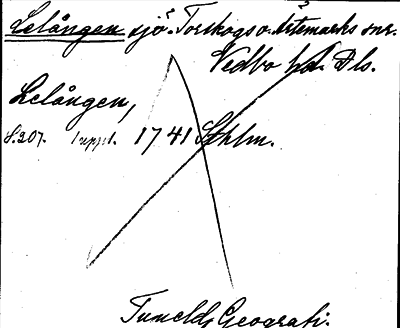 Lelången sjö. Torskogs o. Ärtemarks snr.
Vedbo hd. Dls.
Lelången,
S. 207. 1 uppl. 1741 Sthlm.
Tunelds Geografi.